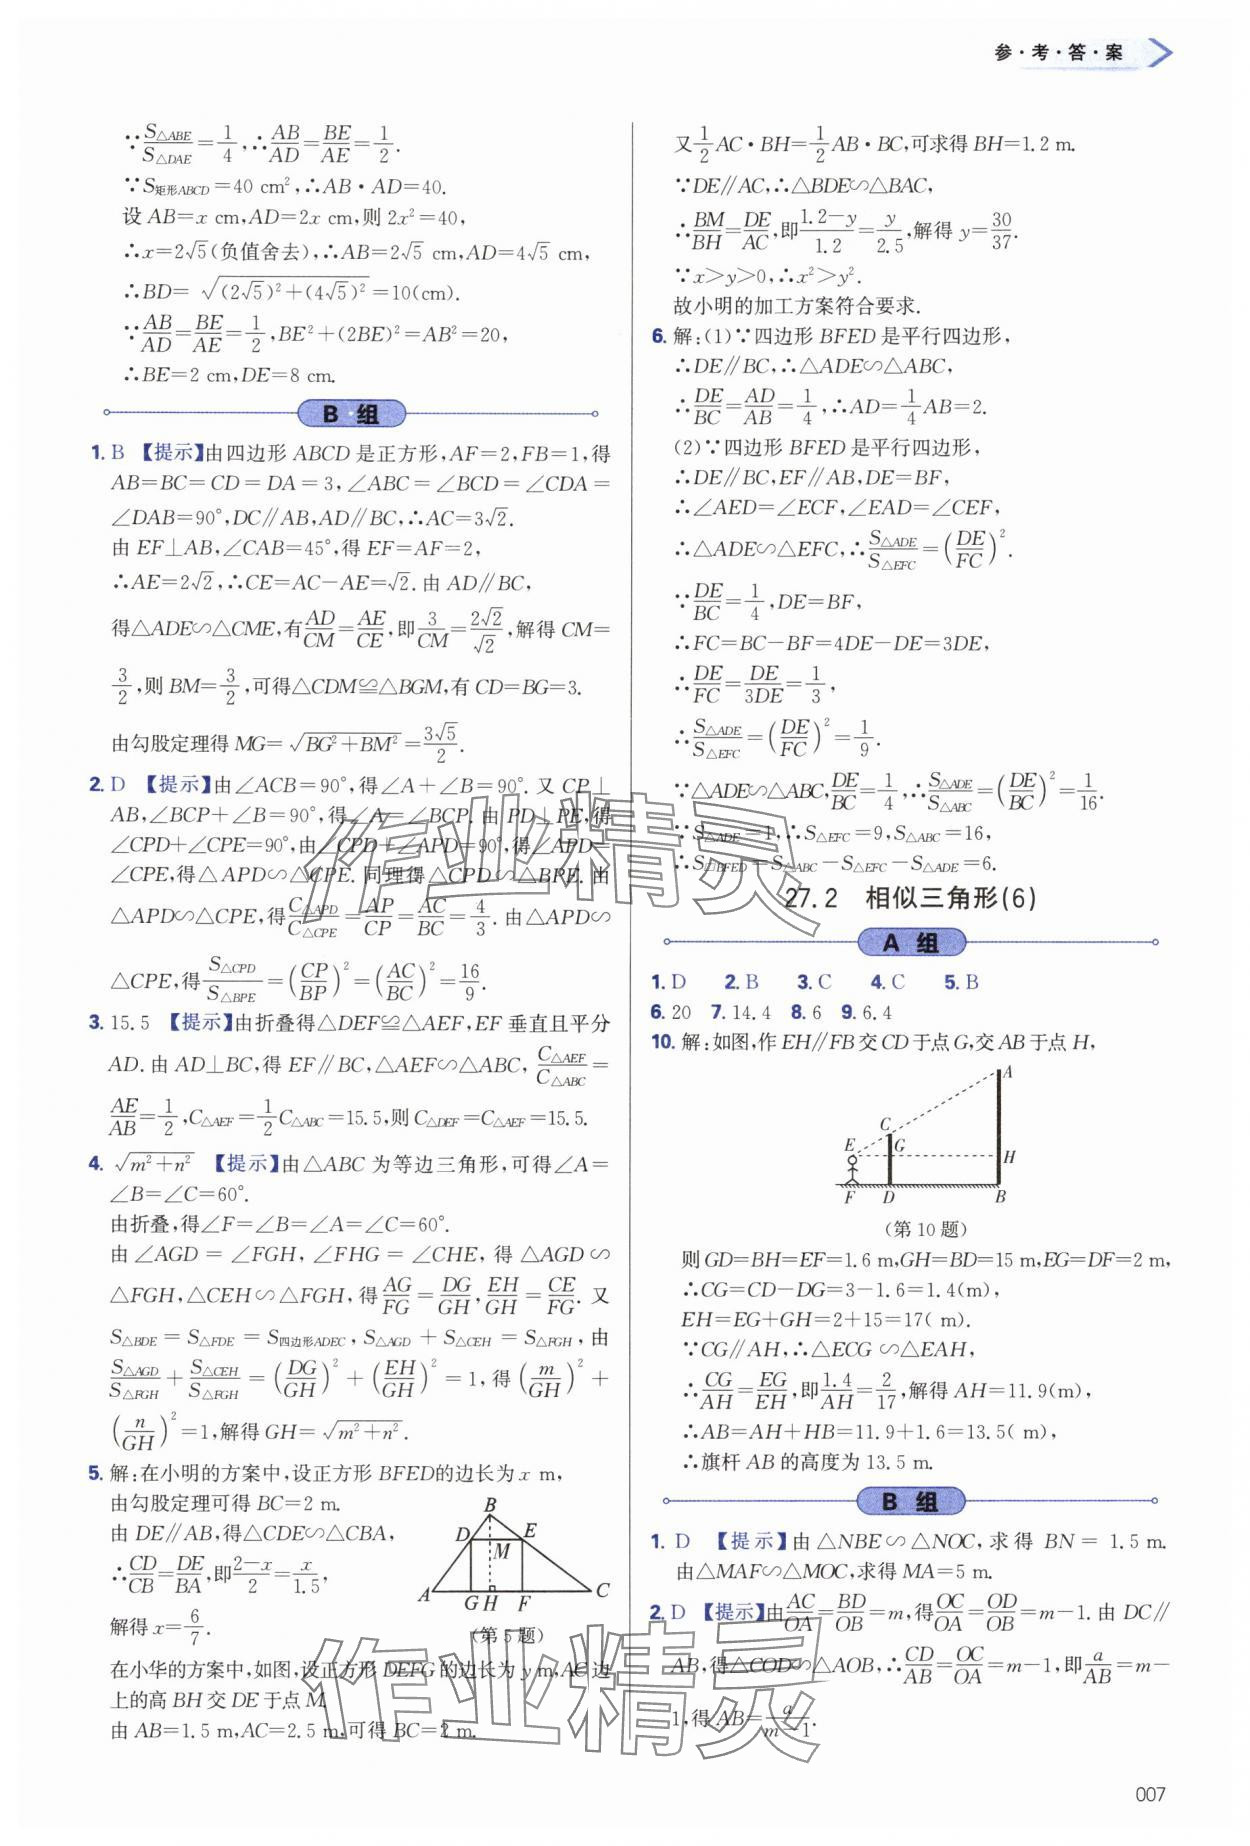 参·考·答·案
∵S△ABE/S△DAE=1/4,∴AB/AD=BE/AE=1/2.
∵S矩形ABCD=40 cm²,∴AB·AD=40.
设 AB=x cm,AD=2x cm,则 2x²=40,
∴x=2√5(负值舍去),∴AB=2√5 cm,AD=4√5 cm,
∴BD=√((2√5)²+(4√5)²)=10(cm).
∵AB/AD=BE/AE=1/2,BE²+(2BE)²=AB²=20,
∴BE=2 cm,DE=8 cm.
B·组
1. B 【提示】由四边形 ABCD 是正方形,AF=2,FB=1,得
AB=BC=CD=DA=3,∠ABC=∠BCD=∠CDA=
∠DAB=90°,DC∥AB,AD∥BC,∴AC=3√2.
由 EF⊥AB,∠CAB=45°,得 EF=AF=2,
∴AE=2√2,∴CE=AC−AE=√2. 由 AD∥BC,
得△ADE∽△CME,有AD/CM=AE/CE,即3/CM=2√2/√2,解得 CM=
3/2,则 BM=3/2,可得△CDM≌△BGM,有 CD=BG=3.
由勾股定理得 MG=√(BG²+BM²)=3√5/2.
2. D 【提示】由∠ACB=90°,得∠A+∠B=90°. 又 CP⊥
AB,∠BCP+∠B=90°,得∠A=∠BCP. 由 PD⊥PE,得
∠CPD+∠CPE=90°,由∠CPD+∠APD=90°,得∠APD=
∠CPE,得△APD∽△CPE. 同理得△CPD∽△BPE. 由
△APD∽△CPE,得C△APD/C△CPE=AP/CP=AC/BC=4/3. 由△APD∽
△CPE,得S△CPD/S△BPE=(CP/BP)²=(AC/BC)²=16/9.
3. 15.5 【提示】由折叠得△DEF≌△AEF,EF 垂直且平分
AD. 由 AD⊥BC,得 EF∥BC,△AEF∽△ABC, C△AEF/C△ABC=
AE/AB=1/2,C△AEF=1/2C△ABC=15.5,则 C△DEF=C△AEF=15.5.
4. √(m²+n²) 【提示】由△ABC 为等边三角形,可得∠A=
∠B=∠C=60°.
由折叠,得∠F=∠B=∠A=∠C=60°.
由 ∠AGD = ∠FGH, ∠FHG = ∠CHE, 得 △AGD ∽
△FGH,△CEH∽△FGH,得AG/FG=DG/GH,EH/GH=CE/FG. 又
S△BDE = S△FDE = S四边形ADEC, S△AGD + S△CEH = S△FGH, 由
S△AGD/S△FGH + S△CEH/S△FGH = (DG/GH)² + (EH/GH)² = 1, 得 (m/GH)² +
(n/GH)²=1,解得 GH=√(m²+n²).
5. 解:在小明的方案中,设正方形 BFED的边长为 x m,
由勾股定理可得 BC=2 m.
由 DE∥AB,得△CDE∽△CBA,
∴CD/CB=DE/BA,即(2−x)/2=x/1.5,
解得 x=6/7.
B
D E
M
A G H F C
(第 5 题)
在小华的方案中,如图,设正方形 DEFG 的边长为 y m,AC 边
上的高 BH 交 DE 于点 M.
由 AB=1.5 m,AC=2.5 m,可得 BC=2 m.
又1/2AC·BH=1/2AB·BC,可求得 BH=1.2 m.
∵DE∥AC,∴△BDE∽△BAC,
∴BM/BH=DE/AC,即(1.2−y)/1.2=y/2.5,解得 y=30/37.
∵x>y>0,∴x²>y².
故小明的加工方案符合要求.
6. 解:(1)∵四边形 BFED 是平行四边形,
∴DE∥BC,∴△ADE∽△ABC,
∴DE/BC=AD/AB=1/4,∴AD=1/4AB=2.
(2)∵四边形 BFED 是平行四边形,
∴DE∥BC,EF∥AB,DE=BF,
∴∠AED=∠ECF,∠EAD=∠CEF,
∴△ADE∽△EFC,∴S△ADE/S△EFC=(DE/FC)².
∵DE/BC=1/4,DE=BF,
∴FC=BC−BF=4DE−DE=3DE,
∴DE/FC=DE/3DE=1/3,
∴S△ADE/S△EFC=(DE/FC)²=1/9.
∵△ADE∽△ABC,DE/BC=1/4,∴S△ADE/S△ABC=(DE/BC)²=1/16.
∵S△ADE=1,∴S△EFC=9,S△ABC=16,
∴S▱BFED=S△ABC−S△EFC−S△ADE=6.
27.2 相似三角形(6)
A 组
1. D 2. B 3. C 4. C 5. B
6. 20 7. 14.4 8. 6 9. 6.4
10. 解:如图,作 EH∥FB 交 CD 于点 G,交 AB 于点 H,
A
C
E G H
F D B
(第 10 题)
则 GD=BH=EF=1.6 m,GH=BD=15 m,EG=DF=2 m,
∴CG=CD−DG=3−1.6=1.4(m),
EH=EG+GH=2+15=17( m).
∵CG∥AH,∴△ECG ∽△EAH,
∴CG/AH=EG/EH,即1.4/AH=2/17,解得 AH=11.9(m),
∴AB=AH+HB=11.9+1.6=13.5( m),
∴旗杆 AB 的高度为 13.5 m.
B 组
1. D 【提示】由 △NBE∽△NOC, 求得 BN = 1.5 m.
由△MAF∽△MOC,求得 MA=5 m.
2. D 【提示】由AC/OA=BD/OB=m,得OC/OA=OD/OB=m−1. 由 DC∥
AB,得△COD∽△AOB,∴CD/AB=OC/OA=m−1,即a/AB=m−
1,得 AB=a/(m−1).
作业精灵
作业精灵
007